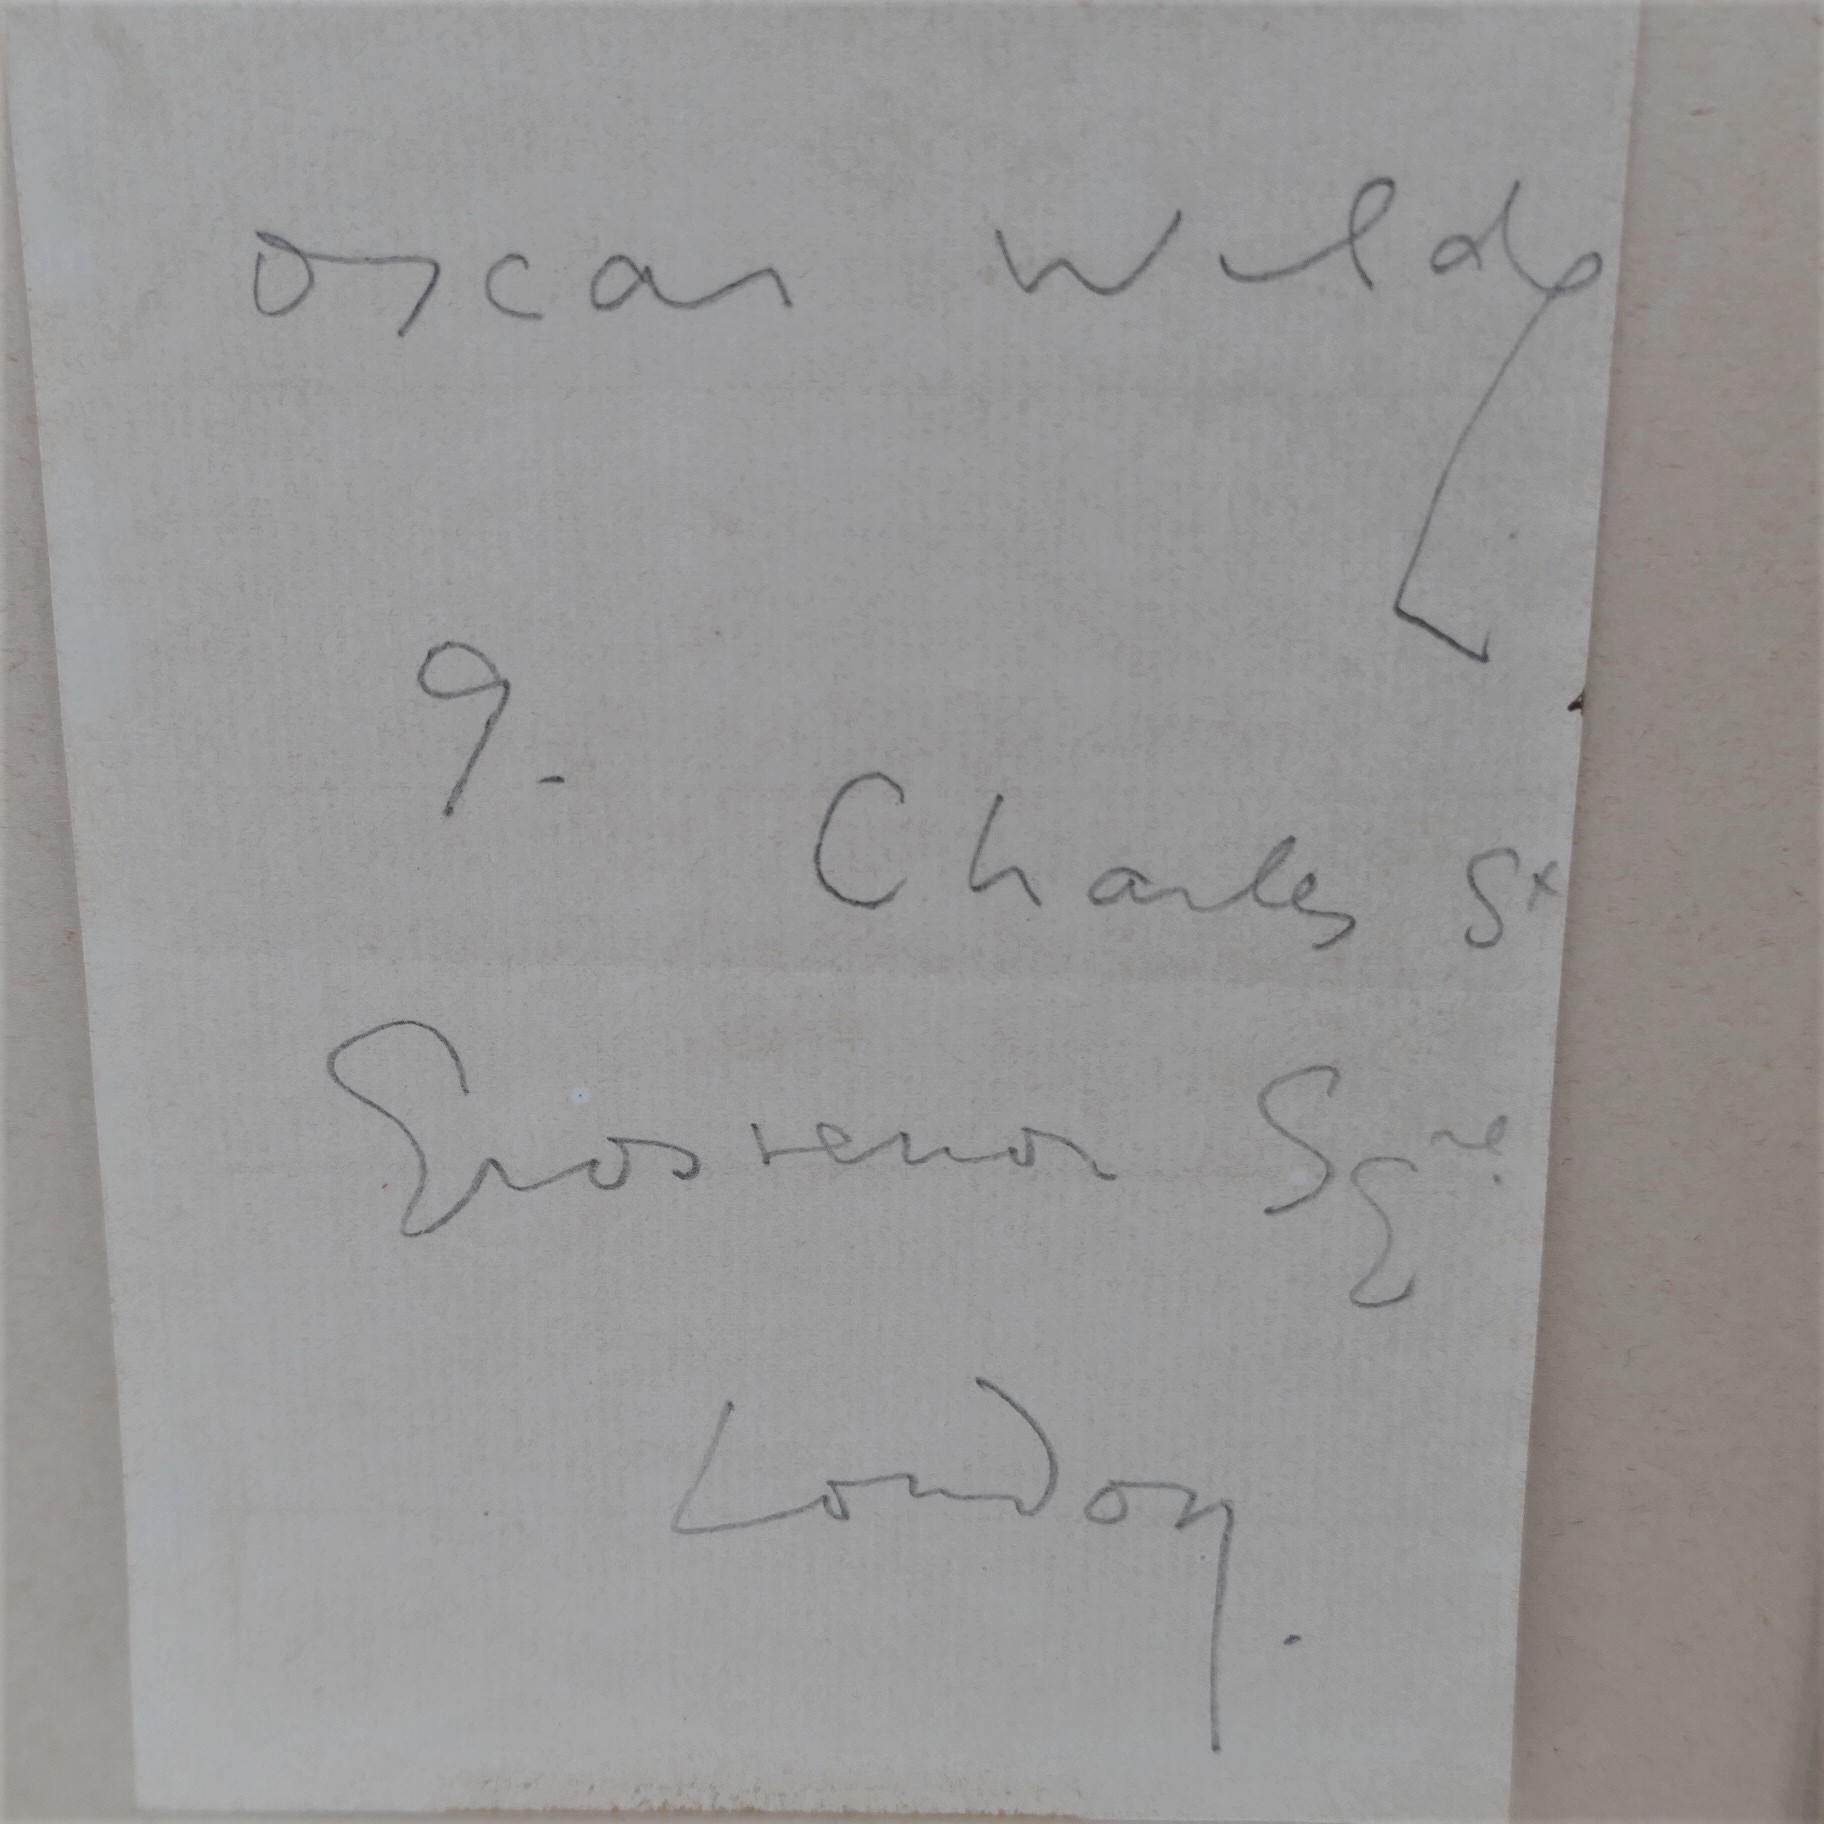 Oscar Wilde
9. Charles St
Grosvenor Sqre.
London.